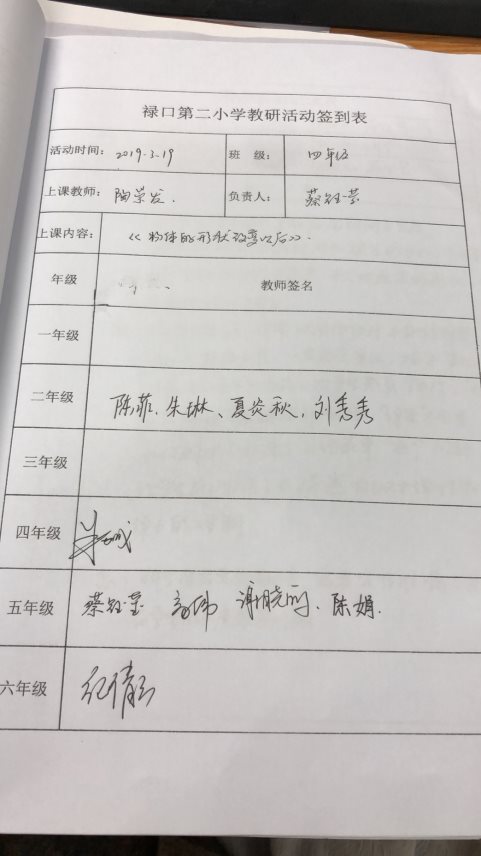 禄口第二小学教研活动签到表
活动时间: 2019.3.19 班 级: 四年级
上课教师: 陶荣发. 负责人: 蔡钰莹
上课内容: 《物体的形状改变以后》.
年级 教师签名
一年级
二年级 陈菲、朱琳、夏炎秋、刘秀秀
三年级
四年级
五年级 蔡钰莹 高伟 谢晓丽、陈娟.
六年级 纪倩云